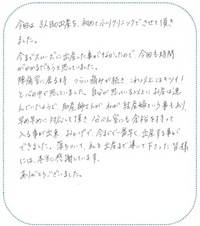 今回は 3人目の出産を、初めてふりクリニックでさせて頂き
ました。
今までスムーズに出産した事がなかったので、今回も時間
がかかるだろうと思っていました。
陣痛室に居る時、つらい痛みが続き これ以上はキツイ!
と心の中で思っていました。自分が思っている以上にお産は進
んでいたようで、助産師さんが 私が経産婦という事もあり
早め早めに対応して頂き 分べん室にも余裕をもって
入る事が出来、おかげで、今までで一番早く出産する事が
できました。落ちついて、私を出産まで導いて下さった皆様
には、本当に感謝しています。
ありがとうございました。